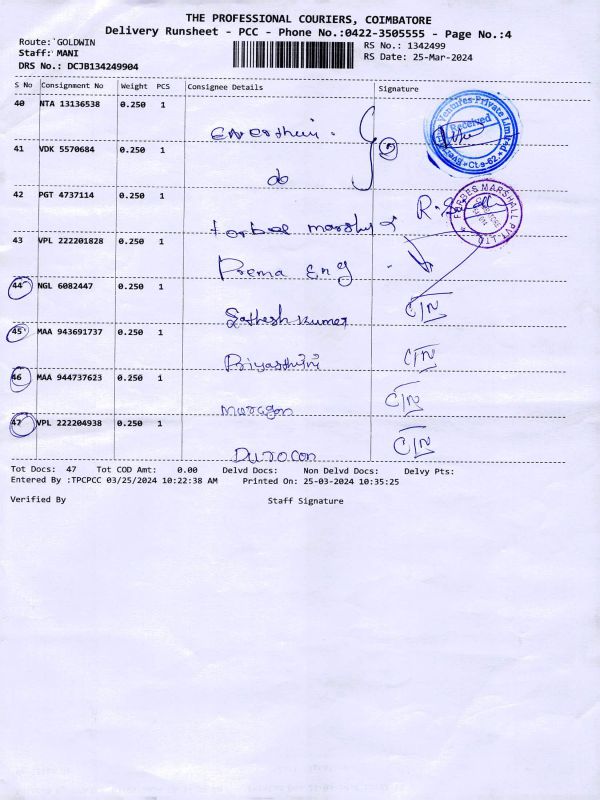 THE PROFESSIONAL COURIERS, COIMBATORE
Delivery Runsheet - PCC - Phone No.:0422-3505555 - Page No.:4
Route: GOLDWIN
RS No.: 1342499
Staff: MANI
RS Date: 25-Mar-2024
DRS No.: DCJB134249904
S No Consignment No Weight PCS Consignee Details Signature
40 NTA 13136538 0.250 1
Ventures Private Limited
Received
Cbe-62
41 VDK 5570684 0.250 1
do
42 PGT 4737114 0.250 1
Forbes Marshall
FORBES MARSHALL PVT. LTD
43 VPL 222201828 0.250 1
Prema Eng
44 NGL 6082447 0.250 1
Sathesh Kumar C/N
45 MAA 943691737 0.250 1
Priyadharshini C/N
46 MAA 944737623 0.250 1
Murugan C/N
47 VPL 222204938 0.250 1
Durocon C/N
Tot Docs: 47 Tot COD Amt: 0.00 Delvd Docs: Non Delvd Docs: Delvy Pts:
Entered By :TPCPCC 03/25/2024 10:22:38 AM Printed On: 25-03-2024 10:35:25
Verified By Staff Signature